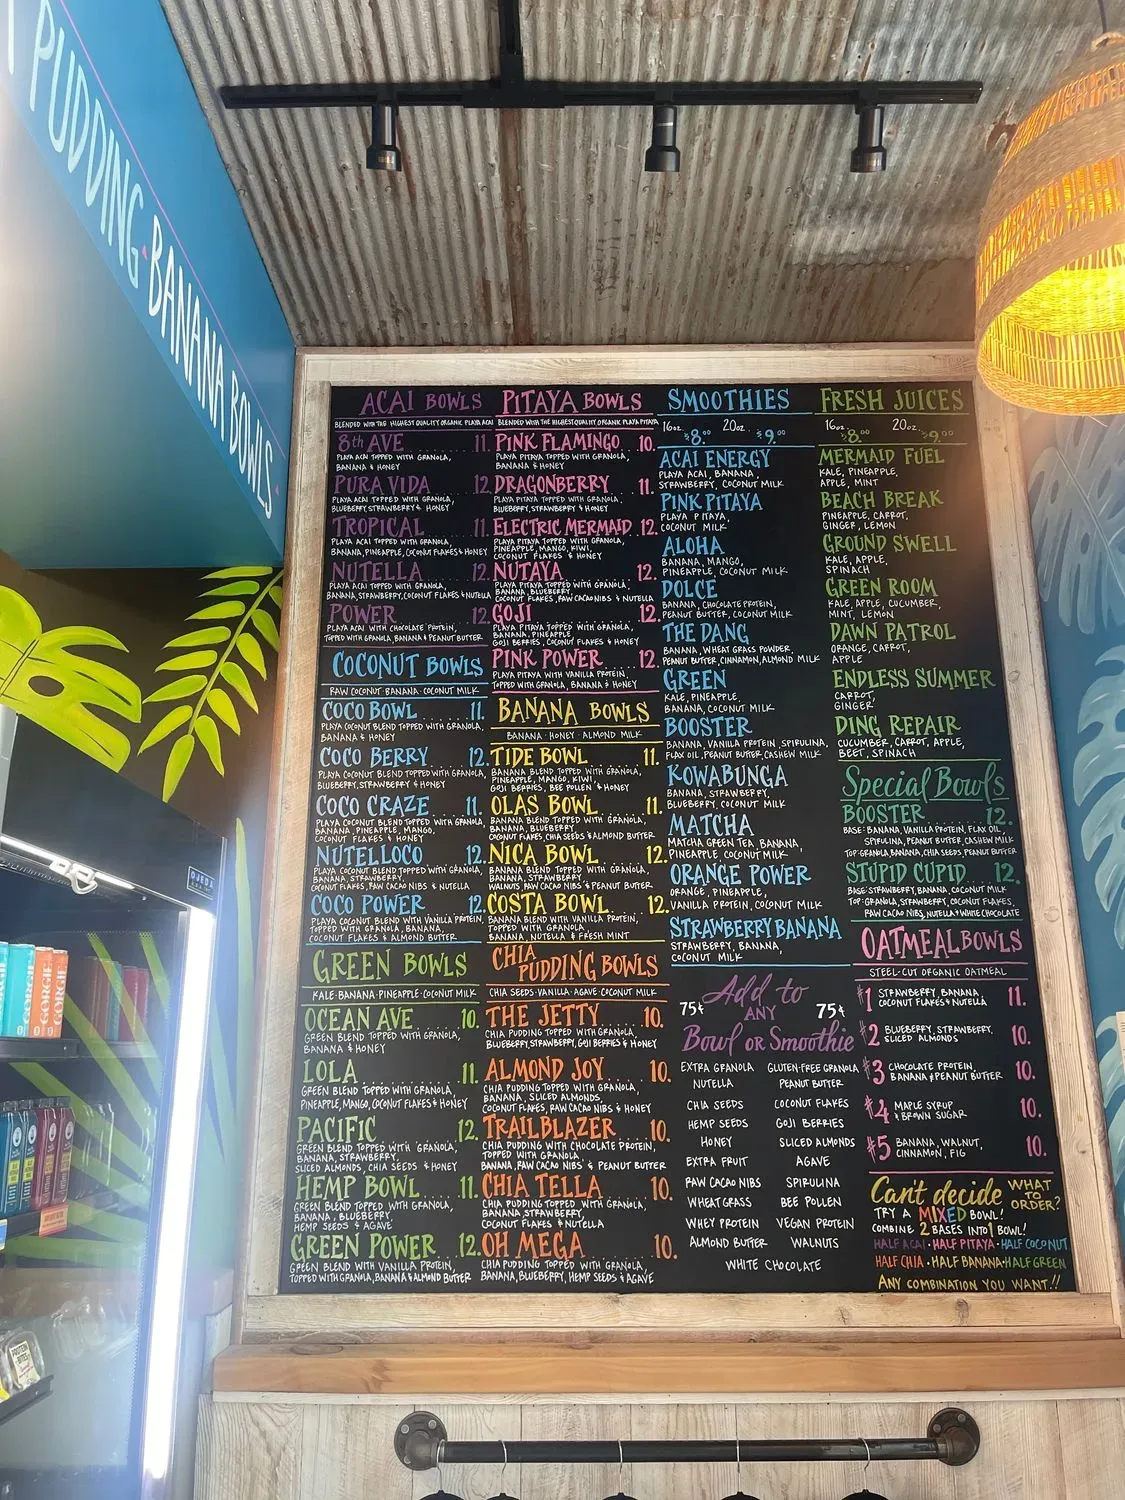 PUDDING · BANANA BOWLS ·
ACAI BOWLS
BLENDED WITH THE HIGHEST QUALITY ORGANIC PLAYA ACAI
8th AVE 11.
PLAYA ACAI TOPPED WITH GRANOLA,
BANANA & HONEY
PURA VIDA 12.
PLAYA ACAI TOPPED WITH GRANOLA,
BLUEBERRY, STRAWBERRY & HONEY
TROPICAL 11.
PLAYA ACAI TOPPED WITH GRANOLA,
BANANA, PINEAPPLE, COCONUT FLAKES & HONEY
NUTELLA 12.
PLAYA ACAI TOPPED WITH GRANOLA,
BANANA, STRAWBERRY, COCONUT FLAKES & NUTELLA
POWER 12.
PLAYA ACAI WITH CHOCOLATE PROTEIN,
TOPPED WITH GRANOLA, BANANA & PEANUT BUTTER
COCONUT BOWLS
RAW COCONUT · BANANA · COCONUT MILK
COCO BOWL 11.
PLAYA COCONUT BLEND TOPPED WITH GRANOLA,
BANANA & HONEY
COCO BERRY 12.
PLAYA COCONUT BLEND TOPPED WITH GRANOLA,
BLUEBERRY, STRAWBERRY & HONEY
COCO CRAZE 11.
PLAYA COCONUT BLEND TOPPED WITH GRANOLA,
BANANA, PINEAPPLE, MANGO,
COCONUT FLAKES & HONEY
NUTELLOCO 12.
PLAYA COCONUT BLEND TOPPED WITH GRANOLA,
BANANA, STRAWBERRY,
COCONUT FLAKES, RAW CACAO NIBS & NUTELLA
COCO POWER 12.
PLAYA COCONUT BLEND WITH VANILLA PROTEIN,
TOPPED WITH GRANOLA, BANANA,
COCONUT FLAKES & ALMOND BUTTER
GREEN BOWLS
KALE · BANANA · PINEAPPLE · COCONUT MILK
OCEAN AVE 10.
GREEN BLEND TOPPED WITH GRANOLA,
BANANA & HONEY
LOLA 11.
GREEN BLEND TOPPED WITH GRANOLA,
PINEAPPLE, MANGO, COCONUT FLAKES & HONEY
PACIFIC 12.
GREEN BLEND TOPPED WITH GRANOLA,
BANANA, STRAWBERRY,
SLICED ALMONDS, CHIA SEEDS & HONEY
HEMP BOWL 11.
GREEN BLEND TOPPED WITH GRANOLA,
BANANA, BLUEBERRY
HEMP SEEDS & AGAVE
GREEN POWER 12.
GREEN BLEND WITH VANILLA PROTEIN,
TOPPED WITH GRANOLA, BANANA & ALMOND BUTTER
PITAYA BOWLS
BLENDED WITH THE HIGHEST QUALITY ORGANIC PLAYA PITAYA
PINK FLAMINGO 10.
PLAYA PITAYA TOPPED WITH GRANOLA,
BANANA & HONEY
DRAGONBERRY 11.
PLAYA PITAYA TOPPED WITH GRANOLA,
BLUEBERRY, STRAWBERRY & HONEY
ELECTRIC MERMAID 12.
PLAYA PITAYA TOPPED WITH GRANOLA,
PINEAPPLE, MANGO, KIWI,
COCONUT FLAKES & HONEY
NUTAYA 12.
PLAYA PITAYA TOPPED WITH GRANOLA,
BANANA, BLUEBERRY,
COCONUT FLAKES, RAW CACAO NIBS & NUTELLA
GOJI 12.
PLAYA PITAYA TOPPED WITH GRANOLA,
BANANA, PINEAPPLE
GOJI BERRIES, COCONUT FLAKES & HONEY
PINK POWER 12.
PLAYA PITAYA WITH VANILLA PROTEIN,
TOPPED WITH GRANOLA, BANANA & HONEY
BANANA BOWLS
BANANA · HONEY · ALMOND MILK
TIDE BOWL 11.
BANANA BLEND TOPPED WITH GRANOLA,
PINEAPPLE, MANGO, KIWI,
GOJI BERRIES, BEE POLLEN & HONEY
OLAS BOWL 11.
BANANA BLEND TOPPED WITH GRANOLA,
BANANA, BLUEBERRY
COCONUT FLAKES, CHIA SEEDS & ALMOND BUTTER
NICA BOWL 12.
BANANA BLEND TOPPED WITH GRANOLA,
BANANA, STRAWBERRY
WALNUTS, RAW CACAO NIBS & PEANUT BUTTER
COSTA BOWL 12.
BANANA BLEND WITH VANILLA PROTEIN,
TOPPED WITH GRANOLA,
BANANA, NUTELLA & FRESH MINT
CHIA PUDDING BOWLS
CHIA SEEDS · VANILLA · AGAVE · COCONUT MILK
THE JETTY 10.
CHIA PUDDING TOPPED WITH GRANOLA,
BLUEBERRY, STRAWBERRY, GOJI BERRIES & HONEY
ALMOND JOY 10.
CHIA PUDDING TOPPED WITH GRANOLA,
BANANA, SLICED ALMONDS,
COCONUT FLAKES, RAW CACAO NIBS & HONEY
TRAILBLAZER 10.
CHIA PUDDING WITH CHOCOLATE PROTEIN,
TOPPED WITH GRANOLA
BANANA, RAW CACAO NIBS & PEANUT BUTTER
CHIA TELLA 10.
CHIA PUDDING TOPPED WITH GRANOLA,
BANANA, STRAWBERRY,
COCONUT FLAKES & NUTELLA
OH MEGA 10.
CHIA PUDDING TOPPED WITH GRANOLA,
BANANA, BLUEBERRY, HEMP SEEDS & AGAVE
SMOOTHIES
16oz. $8.00 20oz. $9.00
ACAI ENERGY
PLAYA ACAI, BANANA,
STRAWBERRY, COCONUT MILK
PINK PITAYA
PLAYA PITAYA,
COCONUT MILK
ALOHA
BANANA, MANGO,
PINEAPPLE, COCONUT MILK
DOLCE
BANANA, CHOCOLATE PROTEIN,
PEANUT BUTTER, COCONUT MILK
THE DANG
BANANA, WHEAT GRASS POWDER,
PEANUT BUTTER, CINNAMON, ALMOND MILK
GREEN
KALE, PINEAPPLE,
BANANA, COCONUT MILK
BOOSTER
BANANA, VANILLA PROTEIN, SPIRULINA,
FLAX OIL, PEANUT BUTTER, CASHEW MILK
KOWABUNGA
BANANA, STRAWBERRY,
BLUEBERRY, COCONUT MILK
MATCHA
MATCHA GREEN TEA, BANANA,
PINEAPPLE COCONUT MILK
ORANGE POWER
ORANGE, PINEAPPLE,
VANILLA PROTEIN, COCONUT MILK
STRAWBERRY BANANA
STRAWBERRY, BANANA,
COCONUT MILK
Add to
75¢ ANY 75¢
Bowl or Smoothie
EXTRA GRANOLA GLUTEN-FREE GRANOLA
NUTELLA PEANUT BUTTER
CHIA SEEDS COCONUT FLAKES
HEMP SEEDS GOJI BERRIES
HONEY SLICED ALMONDS
EXTRA FRUIT AGAVE
RAW CACAO NIBS SPIRULINA
WHEATGRASS BEE POLLEN
WHEY PROTEIN VEGAN PROTEIN
ALMOND BUTTER WALNUTS
WHITE CHOCOLATE
FRESH JUICES
16oz. $8.00 20oz. $9.00
MERMAID FUEL
KALE, PINEAPPLE,
APPLE, MINT
BEACH BREAK
PINEAPPLE, CARROT,
GINGER, LEMON
GROUND SWELL
KALE, APPLE,
SPINACH
GREEN ROOM
KALE, APPLE, CUCUMBER,
MINT, LEMON
DAWN PATROL
ORANGE, CARROT,
APPLE
ENDLESS SUMMER
CARROT,
GINGER
DING REPAIR
CUCUMBER, CARROT, APPLE,
BEET, SPINACH
Special Bowls
BOOSTER 12.
BASE: BANANA, VANILLA PROTEIN, FLAX OIL,
SPIRULINA, PEANUT BUTTER, CASHEW MILK
TOP: GRANOLA, BANANA, CHIA SEEDS, PEANUT BUTTER
STUPID CUPID 12.
BASE: STRAWBERRY, BANANA, COCONUT MILK
TOP: GRANOLA, STRAWBERRY, COCONUT FLAKES,
RAW CACAO NIBS, NUTELLA & WHITE CHOCOLATE
OATMEAL BOWLS
STEEL-CUT ORGANIC OATMEAL
#1 STRAWBERRY, BANANA 11.
COCONUT FLAKES & NUTELLA
#2 BLUEBERRY, STRAWBERRY, 10.
SLICED ALMONDS
#3 CHOCOLATE PROTEIN, 10.
BANANA & PEANUT BUTTER
#4 MAPLE SYRUP 10.
& BROWN SUGAR
#5 BANANA, WALNUT, 10.
CINNAMON, FIG
Can't decide WHAT TO ORDER?
TRY A MIXED BOWL!
COMBINE 2 BASES INTO 1 BOWL!
HALF ACAI · HALF PITAYA · HALF COCONUT
HALF CHIA · HALF BANANA · HALF GREEN
ANY COMBINATION YOU WANT!!
OJEDA
GORGIE
GORGIE
PROTEIN
BITES